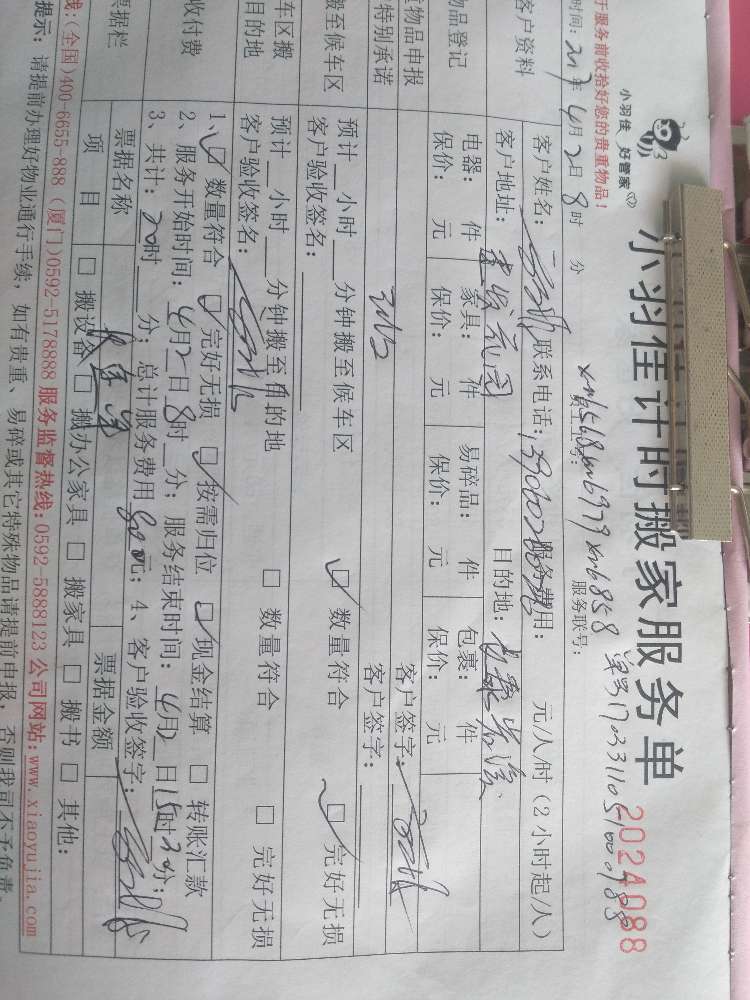 于服务前收拾好您的贵重物品！
小羽佳 好管家
小羽佳计时搬家服务单
2024088
时间：2017年4月2日8时 分
员工工号：xm6568xm6979xm6858
服务联号：
单号17033110510001788
客户资料
客户姓名： 联系电话： 服务费用： 元/人/时（2小时起/人）
客户地址： 建发花园 目的地：
物品登记
电器： 件 家具： 件 易碎品： 件 包裹： 件
保价： 元 保价： 元 保价： 元 保价： 元
物品申报
客户签字：
特别承诺
客户签字：
搬至候车区
预计 小时 分钟搬至候车区 数量符合 完好无损
客户验收签名：
车区搬
目的地
预计 小时 分钟搬至目的地 数量符合 完好无损
客户验收签名：
收付费
1、 数量符合 完好无损 按需归位 现金结算 转账汇款
2、服务开始时间：4月2日8时 分；服务结束时间：4月2日15时30分；
3、共计：20时 分；总计服务费用800元；4、客户验收签字：
票据栏
票据名称 票据金额
项 目 搬设备 搬办公家具 搬家具 搬书 其他：
线:(全国)400-6655-888 (厦门)0592-5178888 服务监督热线:0592-5888123 公司网站:www.xiaoyujia.com
提示：请提前办理好物业通行手续，如有贵重、易碎或其它特殊物品请提前申报，否则我司不予免费。